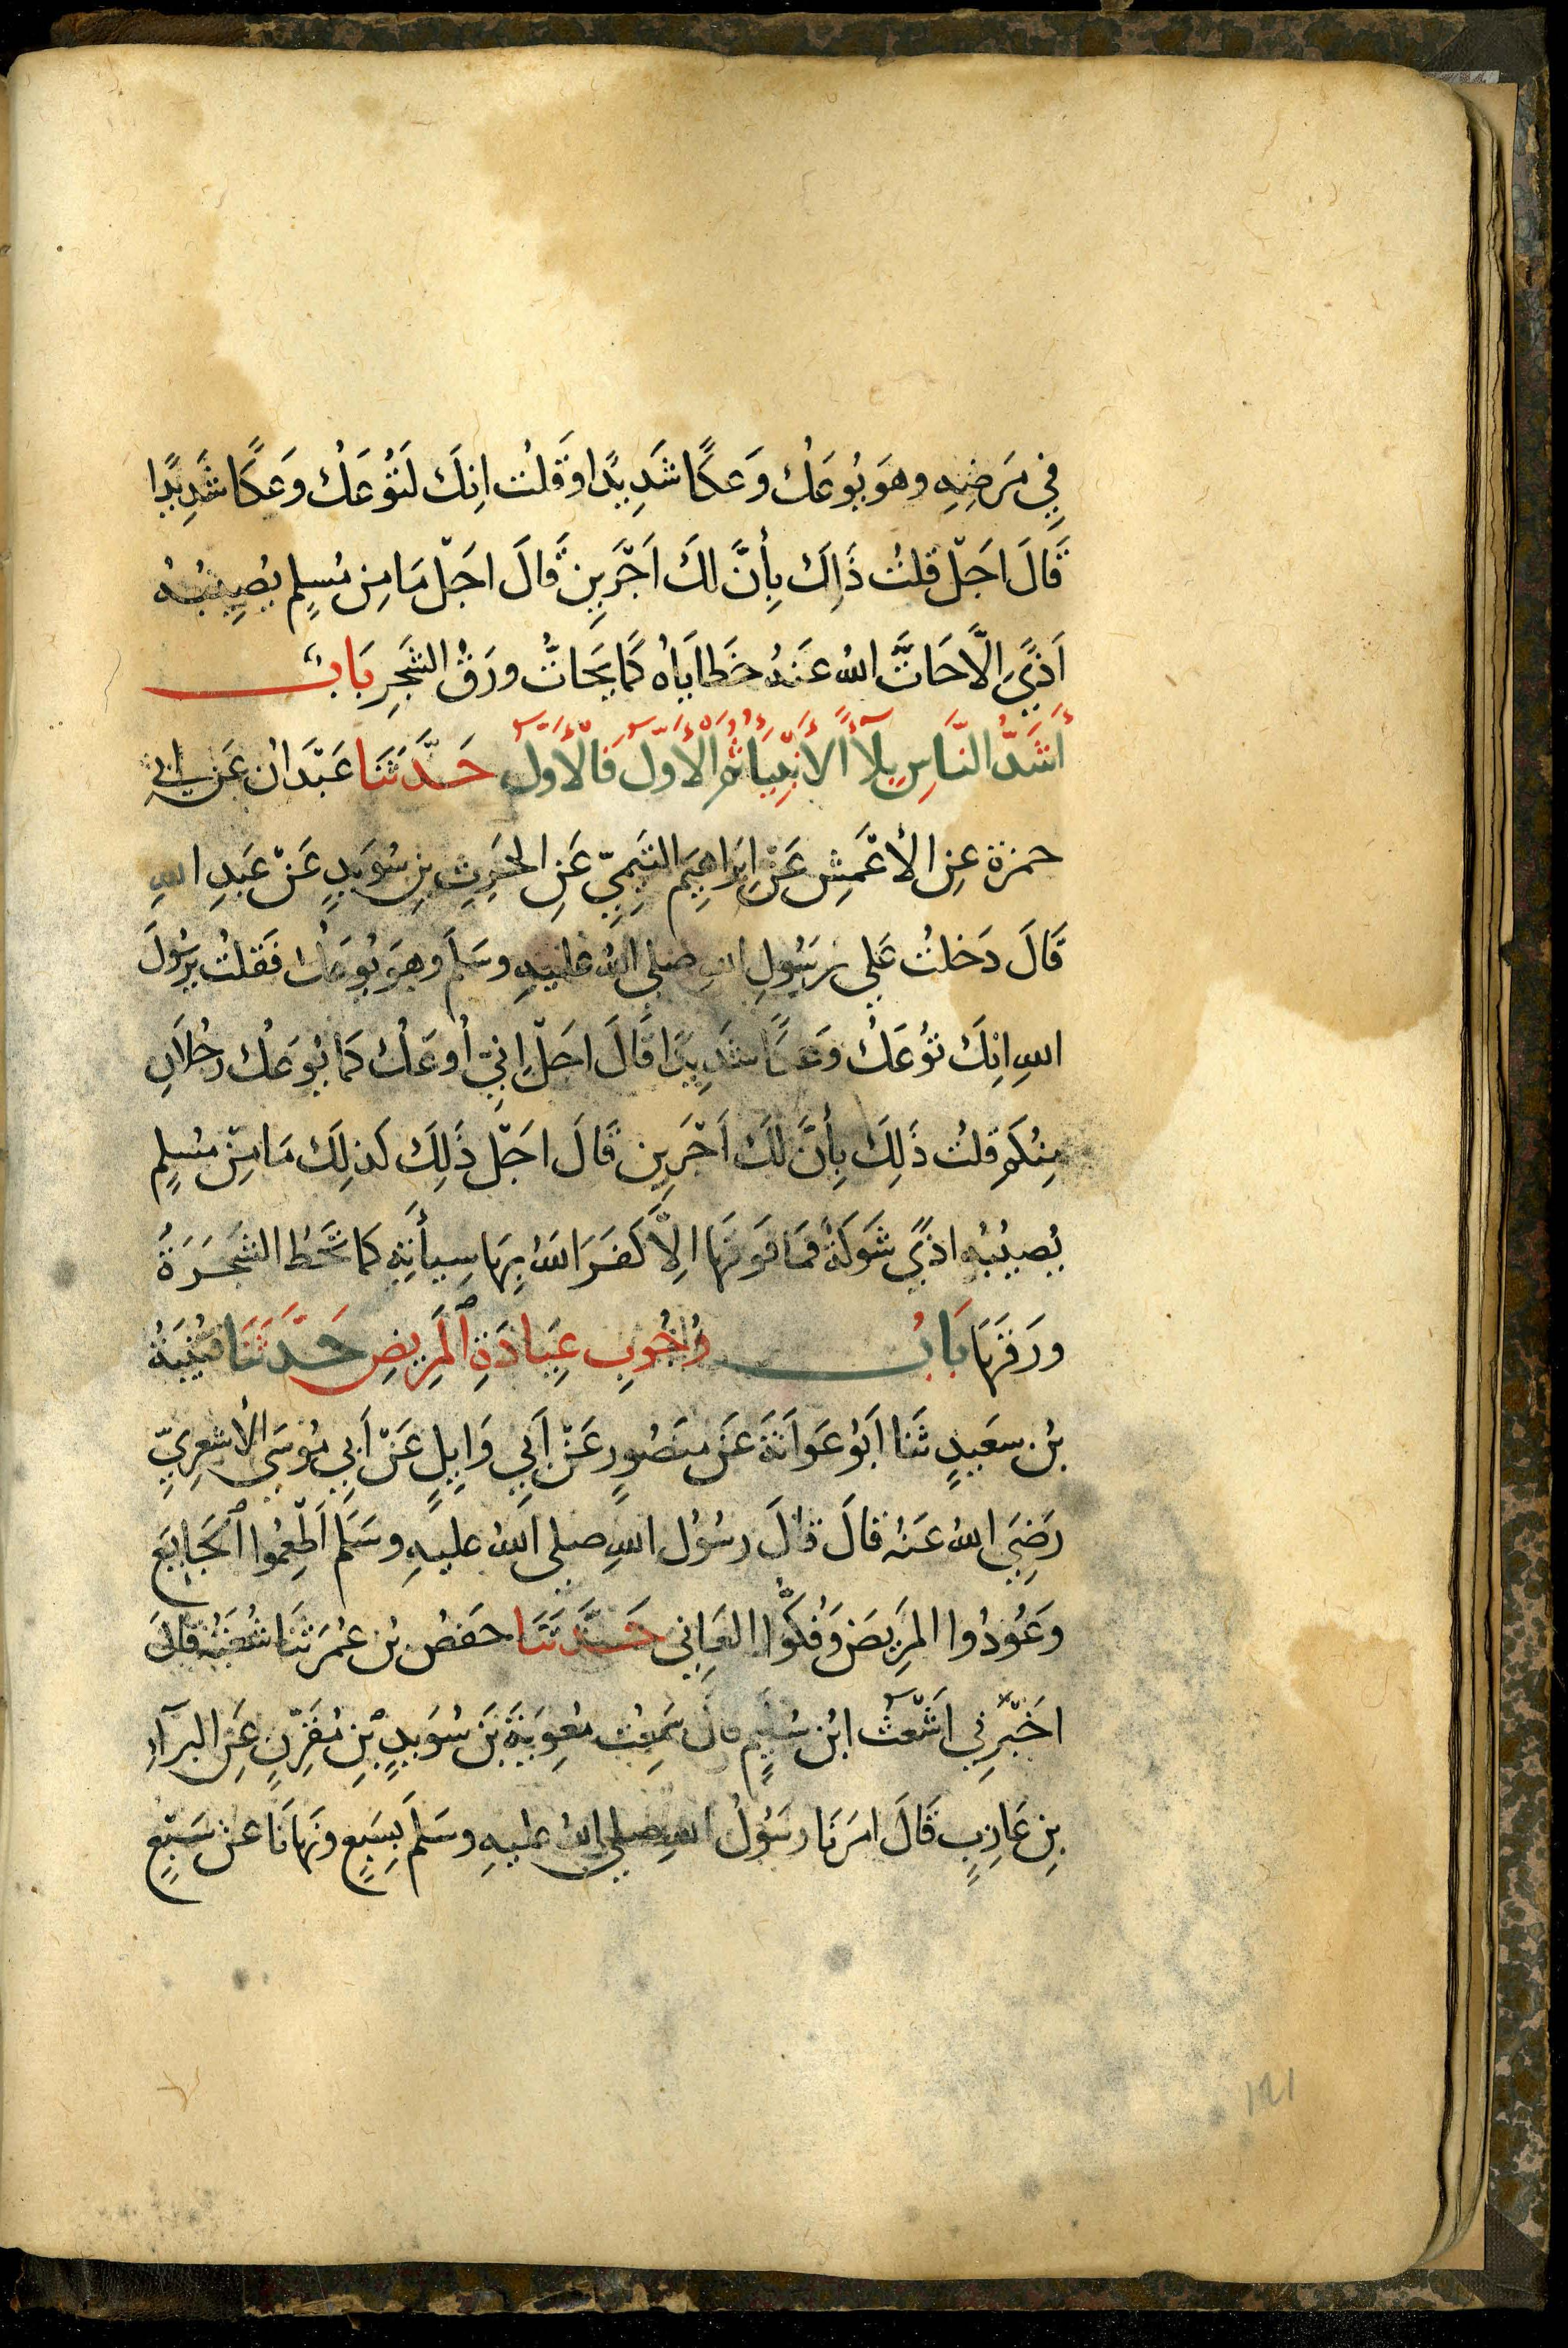 فِي مَرَضِهِ وهوَ يُوعَكُ وَعكًا شَدِيدًا وَقَلتُ انِكَ لَتُوعَكُ وَعَكًا شَدِيدًا
قَالَ اجَلْ قلتُ ذَالَكَ بِأنَّ لكَ اَجْرَينِ قَالَ اجَلْ مَا مِن مُسلِمٍ يُصِيبُهُ
اَذيً اِلَّا حَاتَّ اللهُ عَنهُ خَطَايَاهُ كَمَا يَحَاتُّ ورَقُ الشَجَرِ بَابُ
أَشَدُّ النَّاسِ بِلَآءً الأَنْبِيَآءُ ثُم الْأَوَّلُ فَالْأَوَّلُ حَدَّثَنَا عَبْدَانُ عَن ابي
حمزة عنِ الأَعْمَشِ عَنْ اِبَراهِيمَ التَيمِيّ عَنِ الحَرِثِ بنِ سُوَيدٍ عَنْ عَبدِ اللهِ
قَالَ دَخلتُ عَلى رَسُولِ اللهِ صلى اللهُ عليهِ وسَلمَ وهوَ يُوعَكُ فَقلتُ يرَسُولَ
اللهِ انِكَ تُوعَكُ وَعكًا شَدِيدًا قَالَ اجَلْ اِنِيّ أُوعَكُ كمَا يُوعَكُ رَجُلَانِ
مِنكُم قلتُ ذَلِكَ بِأنَّ لكَ اَجْرَين قَالَ اجَلْ ذَلِكَ كَذلِكَ مَا مِنْ مُسلِمٍ
يُصيبُه اذيً شَوكَةٌ فمَا فَوقَهَا اِلَّا كَفَرَ اللهُ بِهَا سِيأَتِهِ كمَا تَحُطُ الشَجَرَةُ
ورَقَهَا بَابُ وُجُوبِ عِيَادَةِ ٱلمَرِيضِ حَدَّثَنَا قُتَيبَةُ
بنُ سَعَيدٍ ثَنَا اَبُو عَوَانَةَ عَن مَنصُورٍ عَنْ اَبِي وَايِلٍ عَنْ اَبِي مُوسَى الأشعرِيِّ
رَضِيَ اللهُ عَنهُ قالَ قَالَ رسُولُ اللهِ صلى اللهُ عليهِ وسَلَم اَطْعِمُوا ٱلجَايِعَ
وَعُودُوا المَرِيضَ وَفُكُّوا العَانِي حَدَّثَنَا حفصُ بنُ عُمَرَ ثنَا شُعبَةُ قَالَ
اخَبْرَنِي اَشْعَثُ ابنُ سُلَيمٍ قالَ سَمِعْت مُعِوِيَةَ بَنَ سُوَيدٍ بْنِ مُقَرِّنٍ عَنِ البرَآءِ
بنِ عَازِبٍ قَالَ امرَنَا رسَوُلُ اللهِ صلى اللهُ عليهِ وسَلمَ بِسَبعٍ ونَهانَا عن سَبْعٍ
١٢١